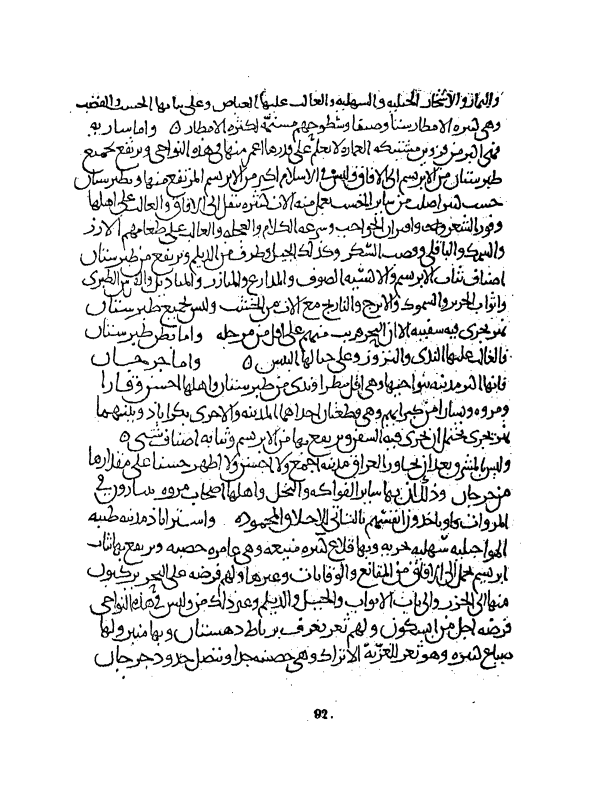 والثمار والاشجار الجبليه والسهليه والغالب عليها الغياض وعلى بنايها الخشب والقصب
وهى كثيره الامطار شتا وصيفا وسطوحهم مسنمه لكثره الامطار ٥ واما ساريه
فهى اكبر من قزوين مشتبكه العماره لا نعلم على قدرها اعمر منها فى هذه النواحى ويرتفع بجميع
طبرستان من الابريسم الى الافاق وليس فى الاسلام اكبر من الابريسم المرتفع منها وبطبرستان
خشب كثير اصله من ساير الخشب يعمل منه الات كثيره تنقل الى الافاق والغالب على اهلها
وفور الشعر واقتران الحواجب وسرعه الكلام والعجله والغالب على طعامهم الارز
والسمك والباقلى وقصب السكر وكذلك الجيل وطرف من الديلم ويرتفع من طبرستان
اصناف ثياب الابريسم والاكسيه الصوف والمدارع والمازر والمناديل والابريز الطبرى
واثواب الحرير والسموك والاترج والنارنج مع الات من الخشب وليس بجميع طبرستان
نهر يجرى فيه سفينه الا ان البحر قريب منهم على اقل من مرحله واما نظر طبرستان
فالغالب عليها الندى والنزوز وعلى جبالها اليبس ٥ واما جرجان
فانها اكبر مدينه بنواحيها وهى اقل مطرا وندى من طبرستان واهلها احسن وقارا
ومروه ويسارا من كبرايهم وهى قطعتان احداهما المدينه والاخرى بكراباد وبينهما
نهر يجرى يحتمل ان يجرى فيه السفن ويرتفع بها من الابريسم وثيابه اصناف شتى ٥
وليس بالمشرق بعد ان يجاوز العراق مدينه اجمع ولا احسن ولا اظهر حسنا على مقدارها
من جرجان وذلك ان بها ساير الفواكه والنخل واهلها اصحاب مروه يتبارون فى
المروات وياخذون انفسهم بالتانى الاخلاق المحموده واستراباد مدينه طيبه
الهوا جبليه سهليه خربه وبها قلاع كثيره منيعه وهى عامره خصبه ويرتفع بها ثياب
ابريسم يحمل الى الافاق من المقانع والوقايات وغيرها ولهم فرضه على البحر يركبون
منها الى الخزر والى باب الابواب والجيل والديلم وغير ذلك من وليس فى هذه النواحى
فرضه اجل من ابسكون ولهم ثغر يعرف برباط دهستان وبها منبر ولها
ضياع كثيره وهو ثغر للغزيه الاتراك وهى حصينه جدا وتتصل حدود جرجان
92.